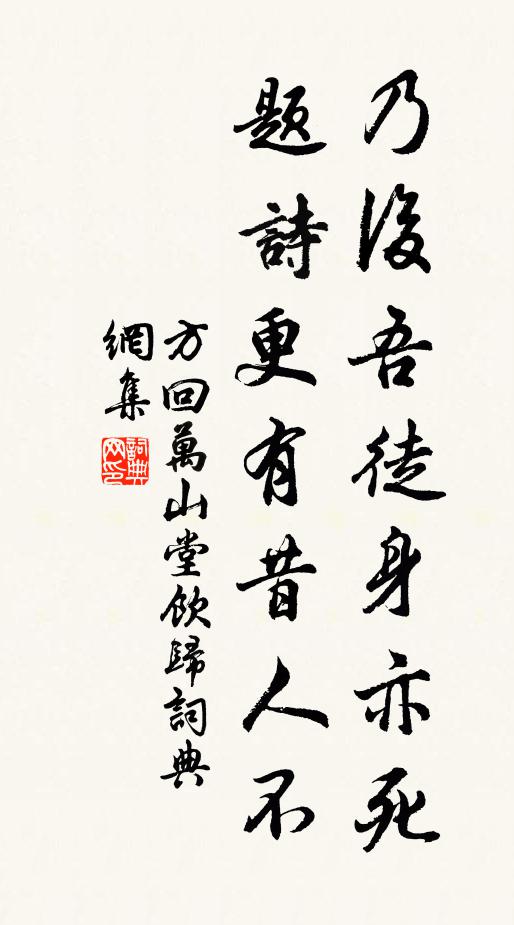 乃後吾徒身亦死
題詩更有昔人不
方回萬山堂飲歸詞典
網集
詞典網印